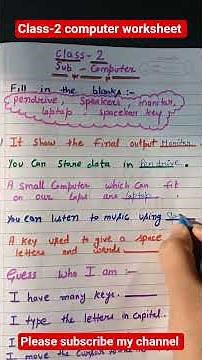 Class-2 computer worksheet
Class- 2
Sub - Computer
Fill in the blanks :-
pendrive, speakers, monitor,
laptop, spacebar key
It show the final output Monitor
You can store data in Pendrive.
A small Computer which can fit
on our laps are laptop.
You can listen to music using
A key used to give a space
letters and words
Guess Who I am :-
I have many keys.
I type the letters in capital.
I move the cursor to the
Please subscribe my channel